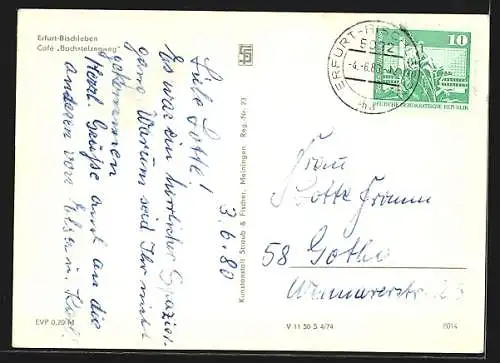 Erfurt-Bischleben
Café „Bachstelzenweg"
3.6.80
Liebe Lotte!
Es war ein herrlicher Spazier-
gang. Warum seid Ihr nicht
gekommen
Herzl. Grüße auch an die
anderen von
Kunstanstalt Straub & Fischer, Meiningen Reg.-Nr. 23
ERFURT-BISCHLEBEN
5092
-4.-6.80
10
DEUTSCHE DEMOKRATISCHE REPUBLIK
Frau
Lotte
58 Gotha
EVP 0,20 M
V 11 50 S 4/74